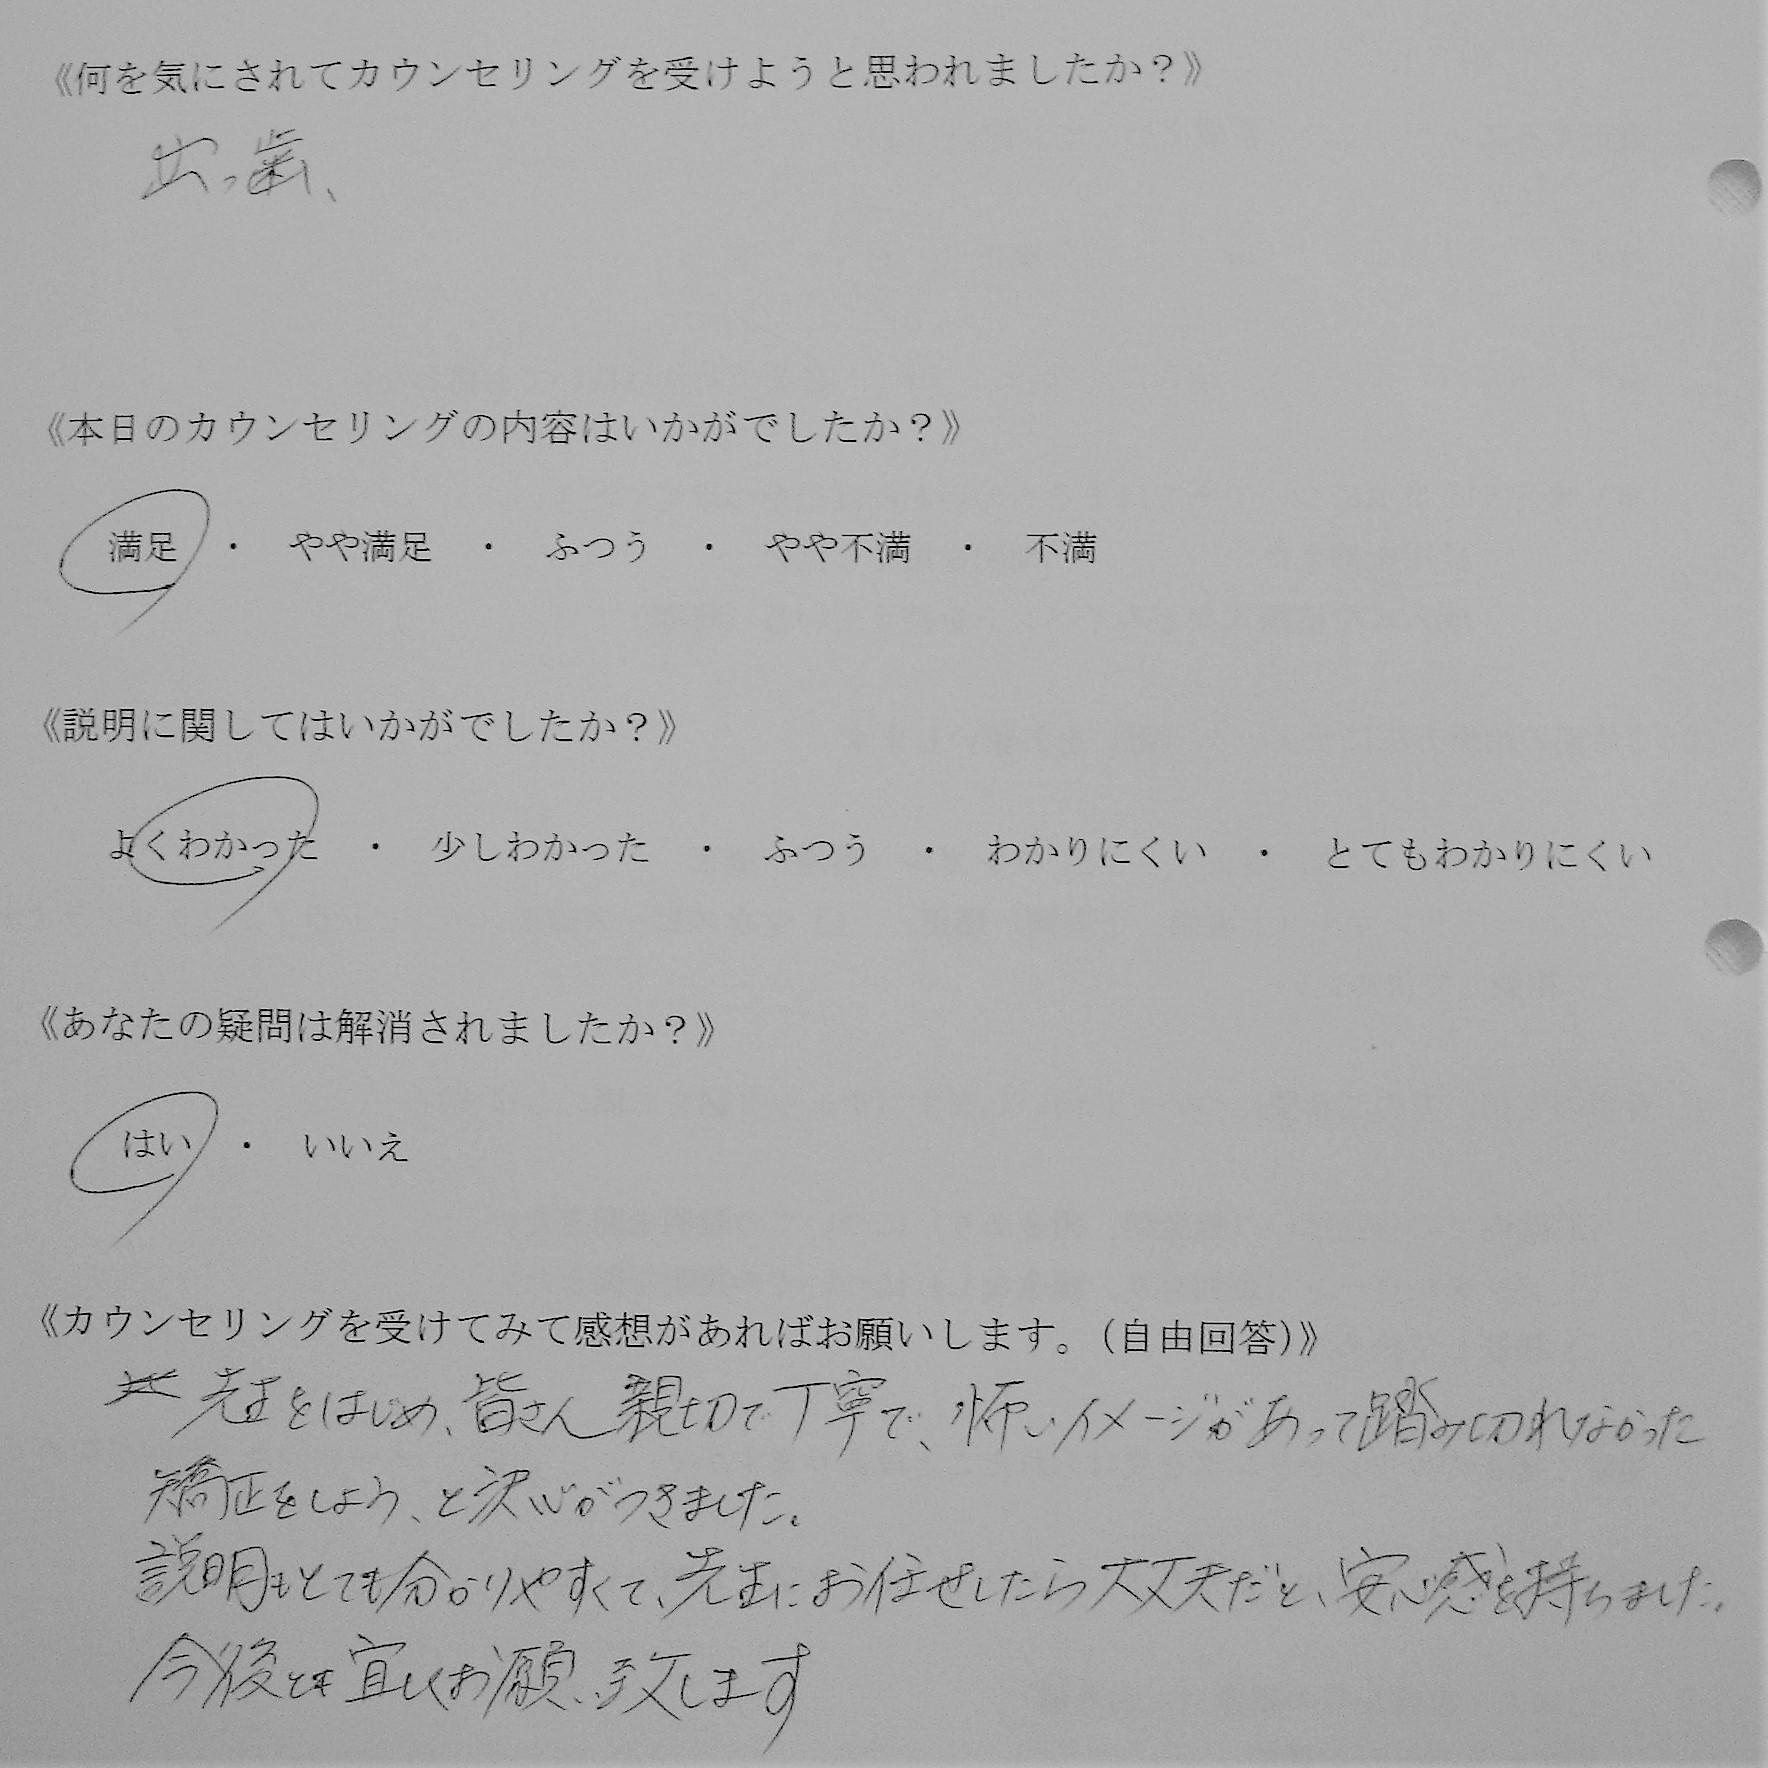 《何を気にされてカウンセリングを受けようと思われましたか？》
出っ歯、
《本日のカウンセリングの内容はいかがでしたか？》
満足 ・ やや満足 ・ ふつう ・ やや不満 ・ 不満
《説明に関してはいかがでしたか？》
よくわかった ・ 少しわかった ・ ふつう ・ わかりにくい ・ とてもわかりにくい
《あなたの疑問は解消されましたか？》
はい ・ いいえ
《カウンセリングを受けてみて感想があればお願いします。（自由回答）》
先生をはじめ、皆さん親切で丁寧で、怖いイメージがあって踏み切れなかった
矯正をしよう、と決心がつきました。
説明もとても分かりやすくて、先生にお任せしたら大丈夫だと、安心感を持ちました。
今後とも宜しくお願い致します